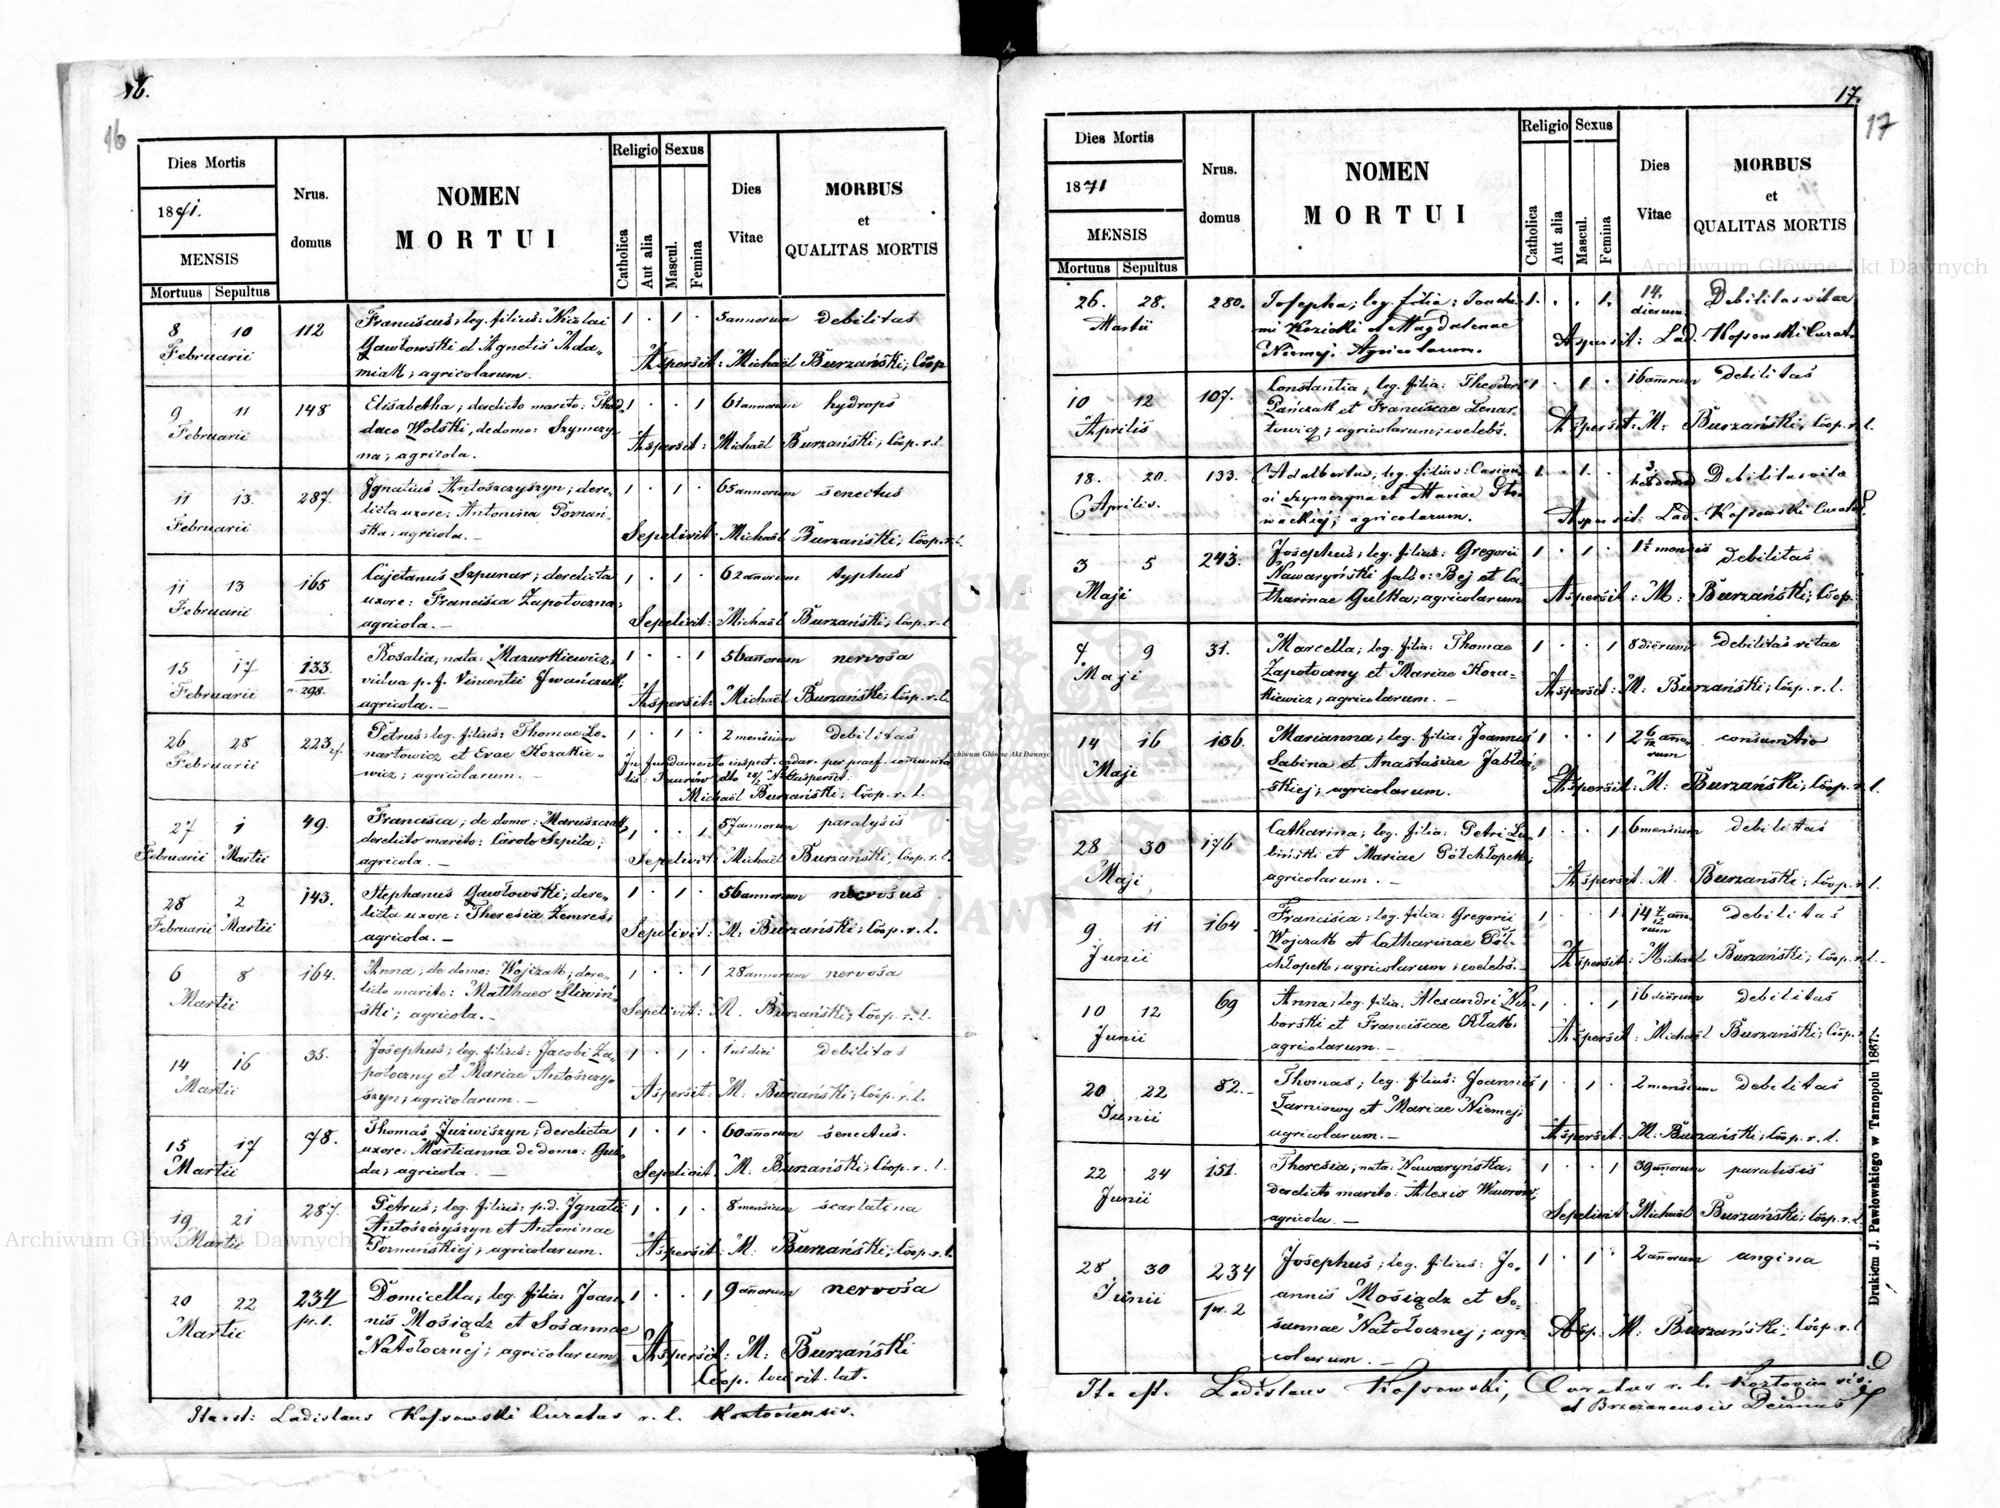 16.
16
Dies Mortis
1871.
MENSIS
Mortuus Sepultus
Nrus. domus
NOMEN MORTUI
Religio
Catholica
Aut alia
Sexus
Mascul.
Femina
Dies Vitae
MORBUS et QUALITAS MORTIS
8 10 112 Franciscus; leg. filius: Nicolai 1 . 1 . 5 annorum debilitas
Februarii Gawłowski et Agnetis Ada-
miak; agricolarum. Aspersit: Michaël Burzański; Coop
9 11 148 Elisabetha; derelicto marito: Thad- 1 . . 1 61 annorum hydrops
Februarii daeo Wolski, de domo: Szymczy-
na; agricola. Aspersit: Michaël Burzański; Coop. r. l.
11 13 287. Ignatius Antoszczyszyn; dere- 1 . 1 . 65 annorum senectus
Februarii licta uxore: Antonina Poznań-
ska; agricola. — Sepelivit: Michaël Burzański; Coop. r. l.
11 13 165 Cajetanus Szpunar; derelicta 1 . 1 . 62 annorum typhus
Februarii uxore: Francisca Zapotoczna;
agricola. — Sepelivit: Michaël Burzański; Coop. r. l.
15 17 133 Rosalia, nata: Mazurkiewicz, 1 . . 1 56 annorum nervosa
Februarii n. 298. vidua p. f. Vincentii Iwańczuk;
agricola. — Aspersit: Michaël Burzański; Coop. r. l.
26 28 223 Petrus; leg. filius: Thomae Le- 1 . 1 . 2 mensium debilitas
Februarii nartowicz et Evae Kozakie-
wicz; agricolarum. — In fundamento inspect. cadav. per praef. comunita
Michaël Burzański; Coop. r. l.
27 1 49. Francisca; de domo: Maruszczak, 1 . . 1 57 annorum paralysis
Februarii Martii derelicto marito: Carolo Szpila;
agricola. — Sepelivit: Michaël Burzański; Coop. r. l.
28 2 143. Stephanus Gawłowski; dere- 1 . 1 . 56 annorum nervosus
Februarii Martii licta uxore: Theresia Zemres;
agricola. — Sepelivit: M. Burzański; Coop. r. l.
6 8 164. Anna; de domo: Wojczak; dere- 1 . . 1 28 annorum nervosa
Martii licto marito: Matthaeo Sliwiń-
ski; agricola. — Sepelivit: M. Burzański; Coop. r. l.
14 16 35. Josephus; leg. filius: Jacobi Za- 1 . 1 . 1 debilitas
Martii potoczny et Mariae Antoszczy-
szyn; agricolarum. — Aspersit: M. Burzański; Coop. r. l.
15 17 78. Thomas Juzwiszyn; derelicta 1 . 1 . 60 annorum senectus.
Martii uxore: Martianna de domo: Guz-
da; agricola. Sepelivit M. Burzański; Coop. r. l.
19 21 287. Petrus; leg. filius: p.d. Ignatii 1 . 1 . 8 mensium scarlatina
Martii Antoszczyszyn et Antoninae
Poznańskiej; agricolarum. Aspersit: M. Burzański; Coop. r. l.
20 22 234 Domicella; leg. filia: Joan- 1 . . 1 9 annorum nervosa
Martii pr. 1. nis Mosiądz et Sosannae
Natołocznej; agricolarum Aspersit: M: Burzański
Coop. loci rit. lat.
Ita est: Ladislaus Kossowski Curatus r. l. Kozloviensis.
17.
17
Dies Mortis
1871
MENSIS
Mortuus Sepultus
Nrus. domus
NOMEN MORTUI
Religio
Catholica
Aut alia
Sexus
Mascul.
Femina
Dies Vitae
MORBUS et QUALITAS MORTIS
26. 28. 280. Josepha; leg. filia: Joachi- 1. . . 1. 14. dierum Debilitas vitae
Martii mi Kozicki et Magdalenae
Niemej. Agricolarum. Aspersit: Lad. Kossowski Curat.
10 12 107. Constantia; leg. filia: Theodori 1 . 1 . 16 annorum debilitas
Aprilis Pańczak et Franciscae Lenar-
towicz; agricolarum; coelebs. Aspersit: M: Burzański; Coop. r. l.
18. 20. 133. Adalbertus; leg. filius: Casimi- 1. . 1. . 3. hebdomad Debilitas vitae
Aprilis. ri Szymczyna et Mariae Sło-
wackiej; agricolarum. Aspersit: Lad. Kossowski Curatus
3 5 243. Josephus; leg. filius: Gregorii 1 . 1 . 1½ mensis debilitas
Maji Nawaryński falso: Bej et Ca-
tharinae Gulka; agricolarum Aspersit: M: Burzański; Coop.
7 9 31. Marcella; leg. filia: Thomae 1 . . 1 8 dierum debilitas vitae
Maji Zapotoczny et Mariae Koza-
kiewicz; agricolarum. — Aspersit: M: Burzański; Coop. r. l.
14 16 136. Marianna; leg. filia: Joannis 1 . . 1 2 6/12 annorum consumtio
Maji Sabina et Anastasiae Jabłoń-
skiej; agricolarum. Aspersit: M: Burzański; Coop. r. l.
28 30 176 Catharina; leg. filia: Petri Lu- 1 . . 1 6 mensium debilitas
Maji biński et Mariae Półchłopek;
agricolarum. — Aspersit. M. Burzański; Coop. r. l.
9 11 164 Francisca; leg. filia: Gregorii 1 . . 1 14 7/12 annorum debilitas
Junii Wojczak et Catharinae Pół-
chłopek; agricolarum; coelebs. — Aspersit: Michaël Burzański; Coop. r. l.
10 12 69 Anna; leg. filia: Alexandri Nie- 1 . . 1 16 dierum debilitas
Junii borski et Franciscae Kłak;
agricolarum. — Aspersit: Michaël Burzański; Coop. r. l.
20 22 82. Thomas; leg. filius: Joannis 1 . 1 . 2 mensium debilitas
Junii Tarniowy et Mariae Niemej;
agricolarum. — Aspersit: M. Burzański; Coop. r. l.
22 24 151. Theresia; nata: Nawaryńska; 1 . . 1 39 annorum paralisis
Junii derelicto marito: Alexio Waworów;
agricola. — Sepelivit Michaël Burzański; Coop. r. l.
28 30 234 Josephus; leg. filius: Jo- 1 . 1 2 annorum angina
Junii pr. 2 annis Mosiądz et So-
sannae Natołocznej; agri-
colarum. — Asp. M. Burzański; Coop. r. l
Ita est. Ladislaus Kossowski, Curatus r. l. Kozloviensis.
et Brzezanensis Decanus
Drukiem J. Pawłowskiego w Tarnopolu 1867.
Archiwum Główne Akt Dawnych
Archiwum Główne Akt Dawnych
Archiwum Główne Akt Dawnych
ARCHIWUM GŁÓWNE AKT DAWNYCH